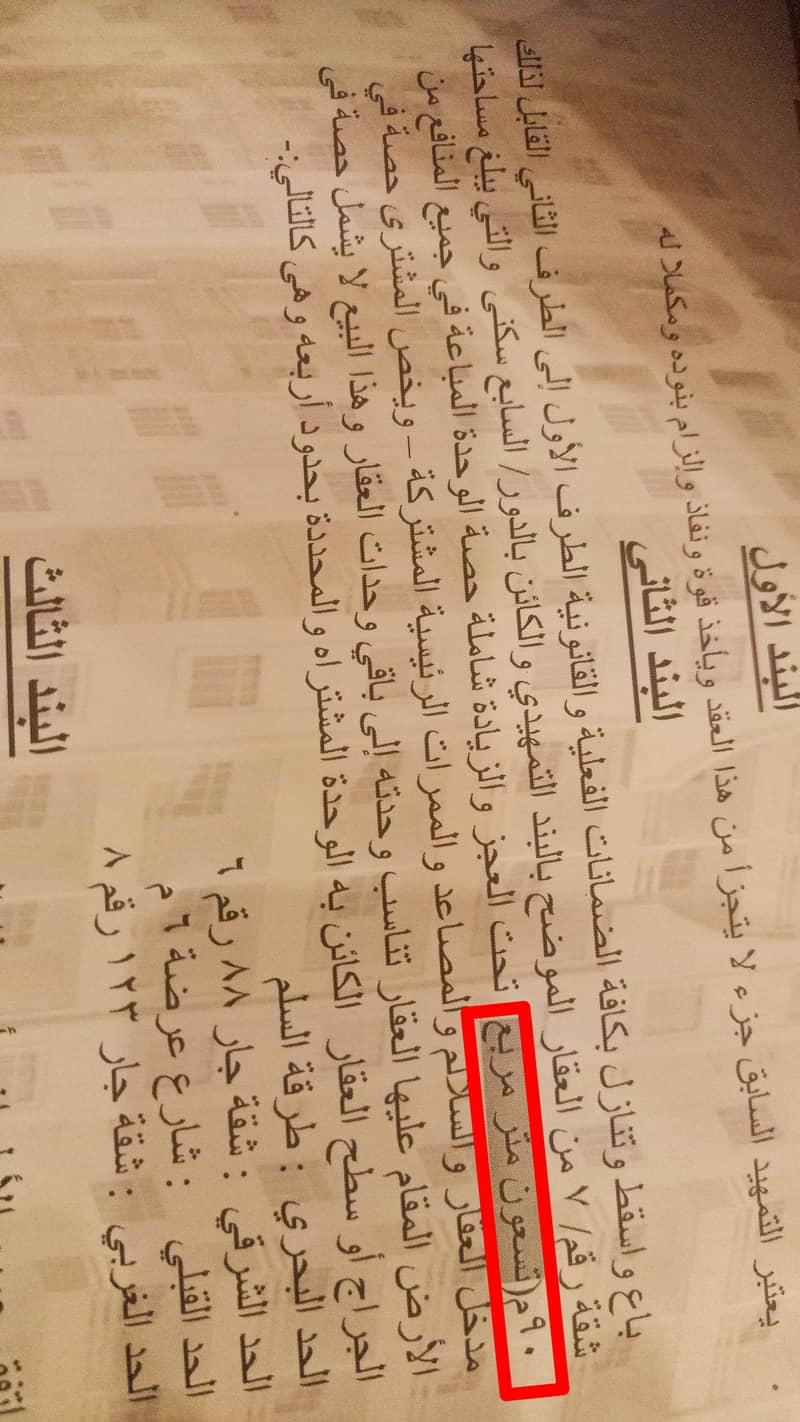 البند الأول
يعتبر التمهيد السابق جزء لا يتجزأ من هذا العقد ويأخذ قوة ونفاذ وإلزام بنوده ومكملا له
البند الثانى
باع واسقط وتنازل بكافة الضمانات الفعلية والقانونية الطرف الأول إلى الطرف الثاني القابل لذلك
شقة رقم/ ٧ من العقار الموضح بالبند التمهيدي والكائن بالدور/ السابع سكنى والتي يبلغ مساحتها
٩٠م(تسعون متر مربع تحت العجز والزيادة شاملة حصة الوحدة المباعة في جميع المنافع من
مدخل العقار والسلالم والمصاعد والممرات الرئيسية المشتركة – ويخص المشترى حصة في
الأرض المقام عليها العقار تناسب وحدته إلى باقي وحدات العقار وهذا البيع لا يشمل حصة فى
الجراج أو سطح العقار الكائن به الوحدة المشتراه والمحددة بحدود أربعه وهى كالتالي:-
الحد البحري : طرقة السلم
الحد الشرقي : شقة جار ٨٨ رقم ٦
الحد القبلي : شارع عرضة ٦ م
الحد الغربي : شقة جار ١٢٣ رقم ٨
البند الثالث